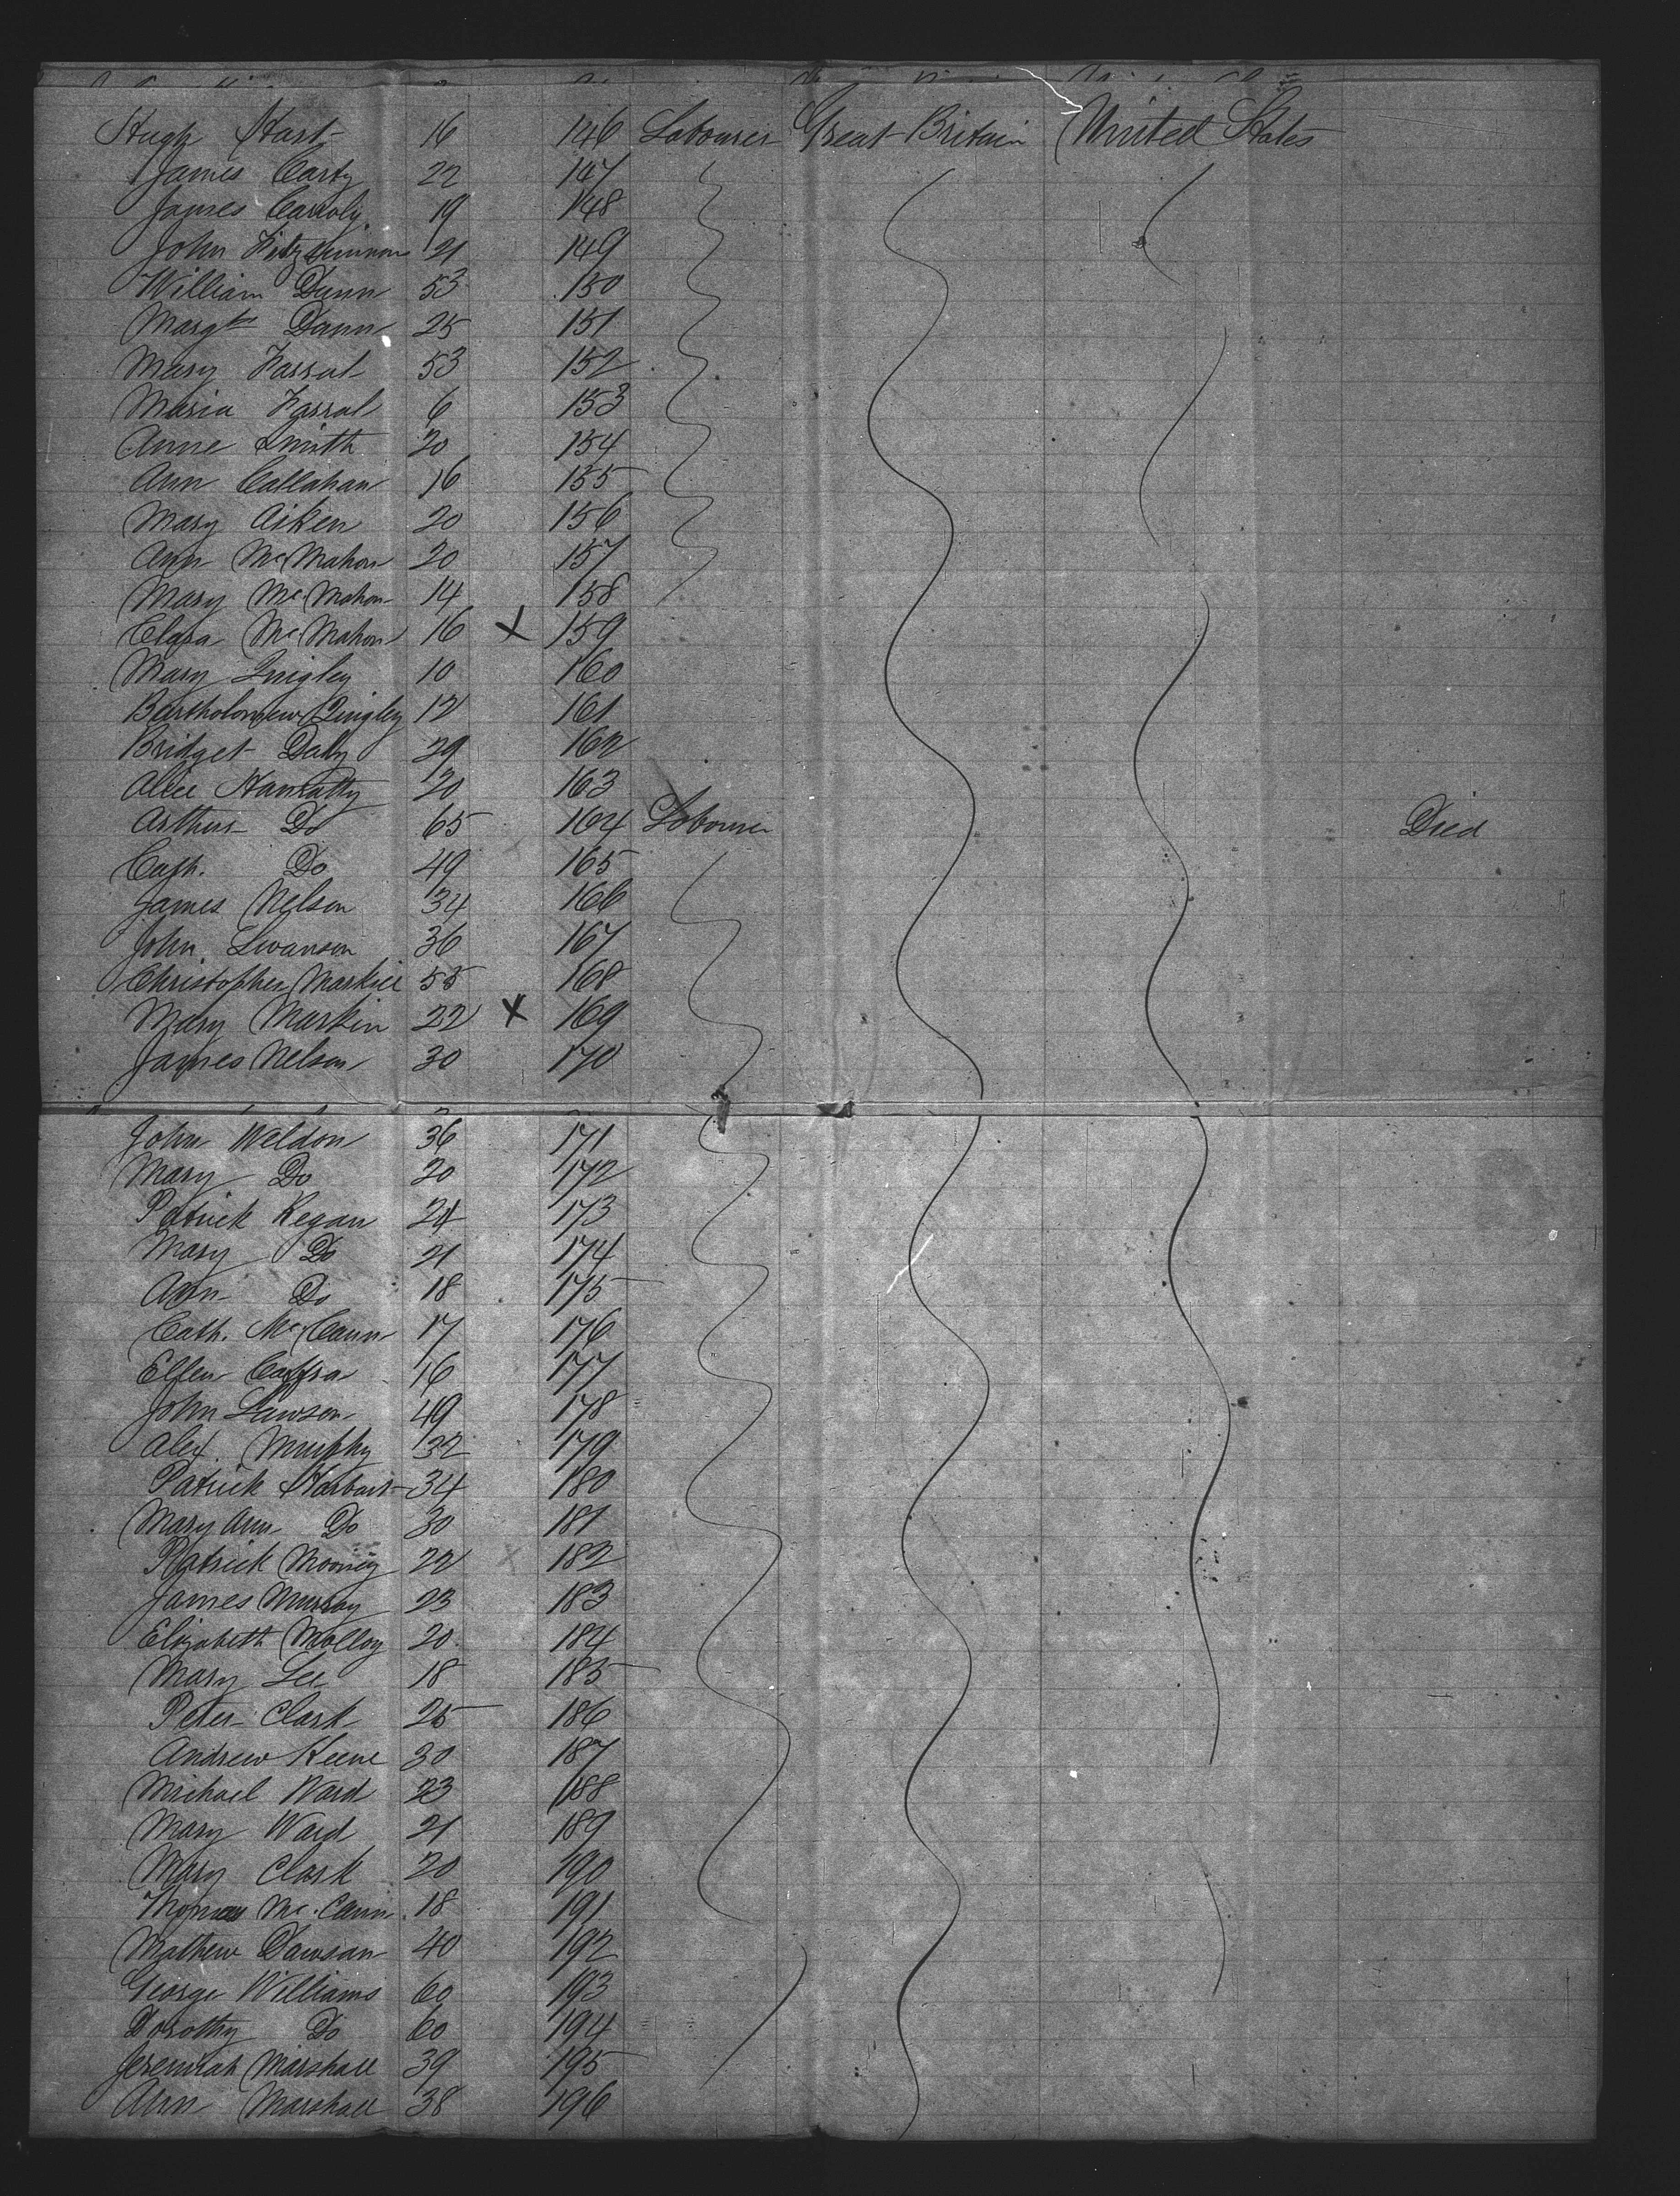 Hugh Hart 16 146 Labourer Great Britain United States
James Carty 22 147
James Carroly 19 148
John Fitzsimmons 21 149
William Dunn 53 150
Margt Dunn 25 151
Mary Farral 53 152
Maria Farral 6 153
Anne Smith 20 154
Ann Callahan 16 155
Mary Aiken 20 156
Ann McMahon 20 157
Mary McMahon 14 158
Clara McMahon 16 X 159
Mary Quigley 10 160
Bartholomew Quigley 12 161
Bridget Daly 29 162
Alice Hanratty 20 163
Arthur Do 65 164 Labourer Died
Cath. Do 49 165
James Nelson 34 166
John Swanson 36 167
Christopher 55 168
Mary Markin 22 X 169
James Nelson 30 170
John Weldon 36 171
Mary Do 20 172
Patrick Regan 24 173
Mary Do 21 174
Ann Do 18 175
Cath. McCann 17 176
Ellen 16 177
John Lawson 49 178
Alex. Murphy 32 179
Patrick 34 180
Mary Ann Do 30 181
Patrick Mooney 22 182
James Murray 23 183
Elizabeth Molloy 20 184
Mary Lee 18 185
Peter Clark 25 186
Andrew Keene 30 187
Michael Ward 23 188
Mary Ward 21 189
Mary Clark 20 190
Thomas McCann 18 191
Mathew Dawson 40 192
George Williams 60 193
Dorothy Do 60 194
Jeremiah Marshall 39 195
Ann Marshall 38 196